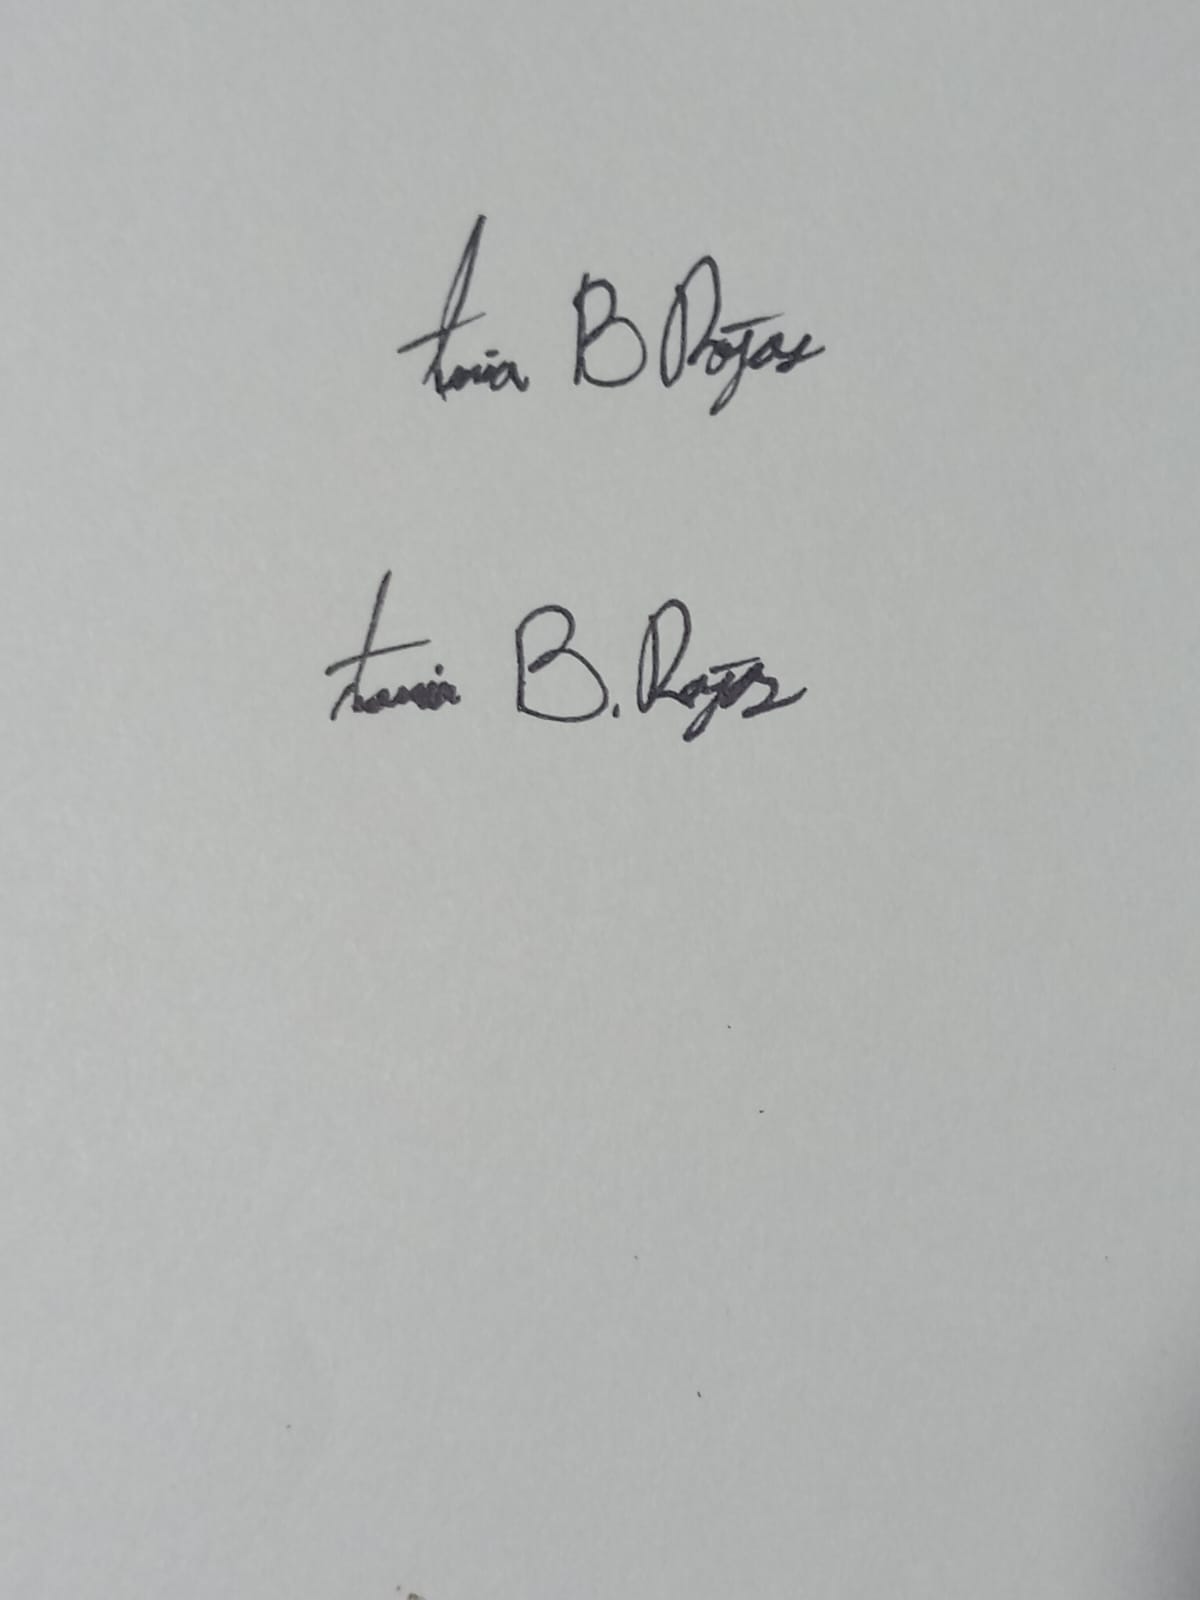 tania B Rojas
tania B. Rojas